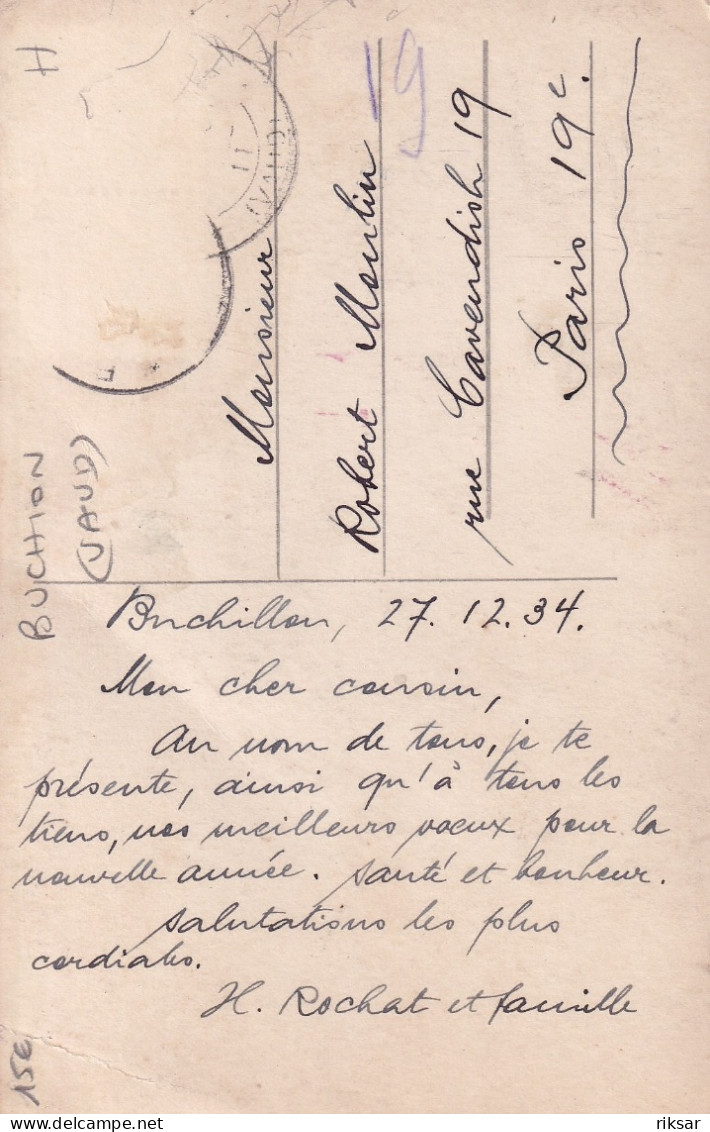 H
(VAUD)
II
19
Monsieur
Robert Moulin
rue Cavendish 19
Paris 19e.
BUCHION
(VAUD)
Buchillon, 27.12.34.
Mon cher cousin,
Au nom de tous, je te
présente, ainsi qu'à tous les
tiens, nos meilleurs voeux pour la
nouvelle année. Santé et bonheur.
Salutations les plus
cordiales.
H. Rochat et famille
15€
delcampe.net
riksar